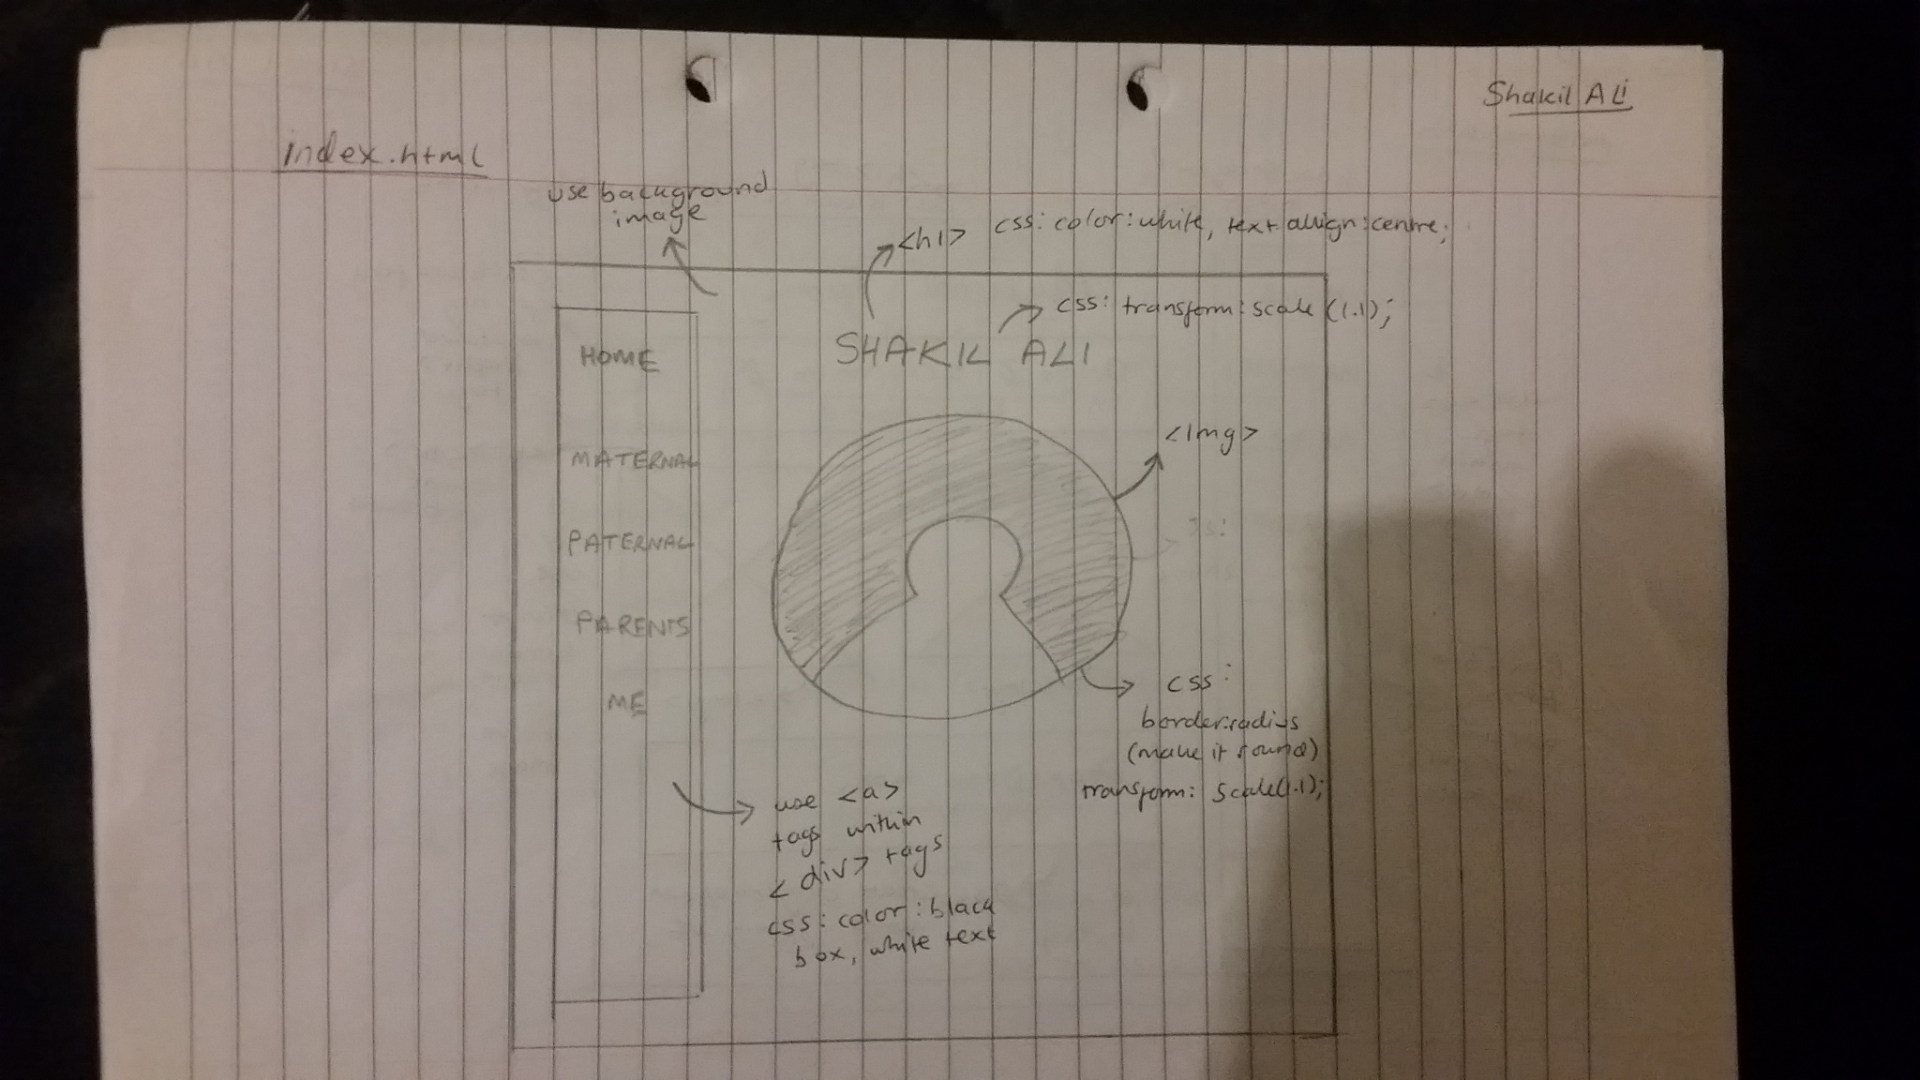 Shakil Ali
index.html
use background
image
<h1> css: color:white, text allign:centre;
css: transform:scale (1.1);
SHAKIL ALI
HOME
MATERNAL
PATERNAL
PARENTS
ME
<img>
css:
border:radius
(make it round)
transform: scale(1.1);
use <a>
tags within
<div> tags
css: color:black
box, white text